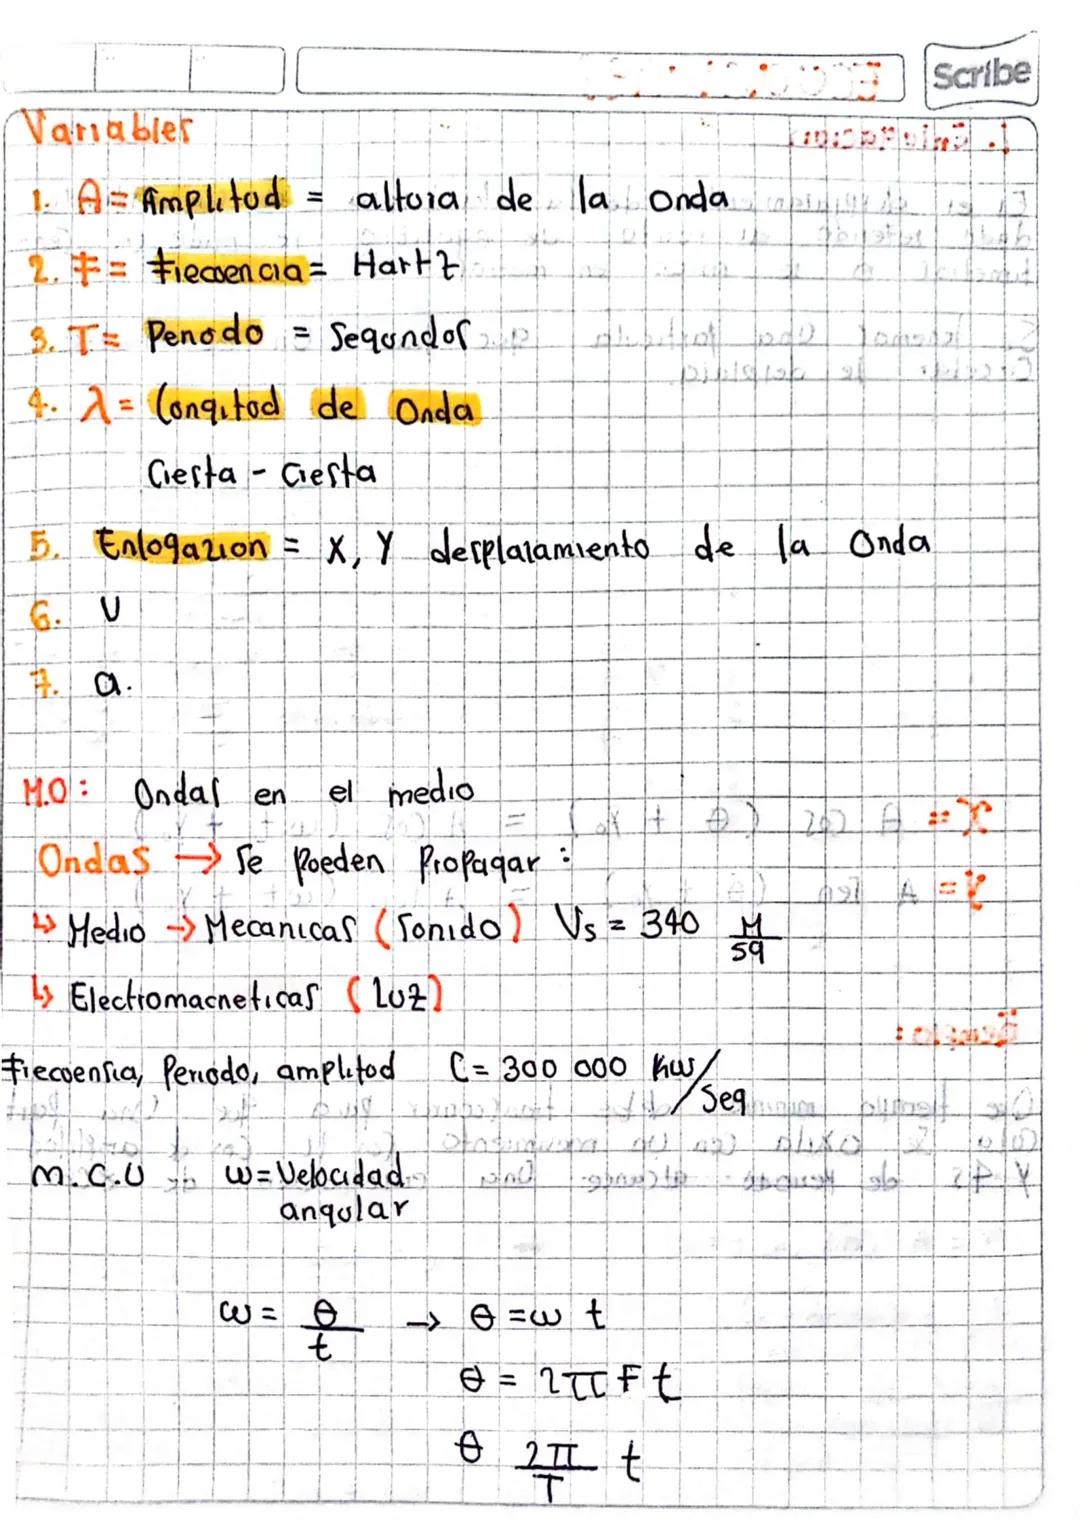 Scribe
Variables
1. A = Amplitud = altura de la onda
2. F = frecuencia = Hartz
3. T = Periodo = Segundos
4. λ = Longitud de Onda
Cresta - Cresta
5. Enlogazion = X, Y desplazamiento de la Onda
6. V
7. a.
M.O: Ondas en el medio
Ondas → Se pueden Propagar :
↳ Medio → Mecanicas (Sonido) Vs = 340 M/sg
↳ Electromacneticas (Luz)
frecuensia, Periodo, amplitud C = 300 000 Km/Seg
M.C.U ω = Velocidad
angular
ω = θ/t → θ = ω t
θ = 2π F t
θ 2π/T t